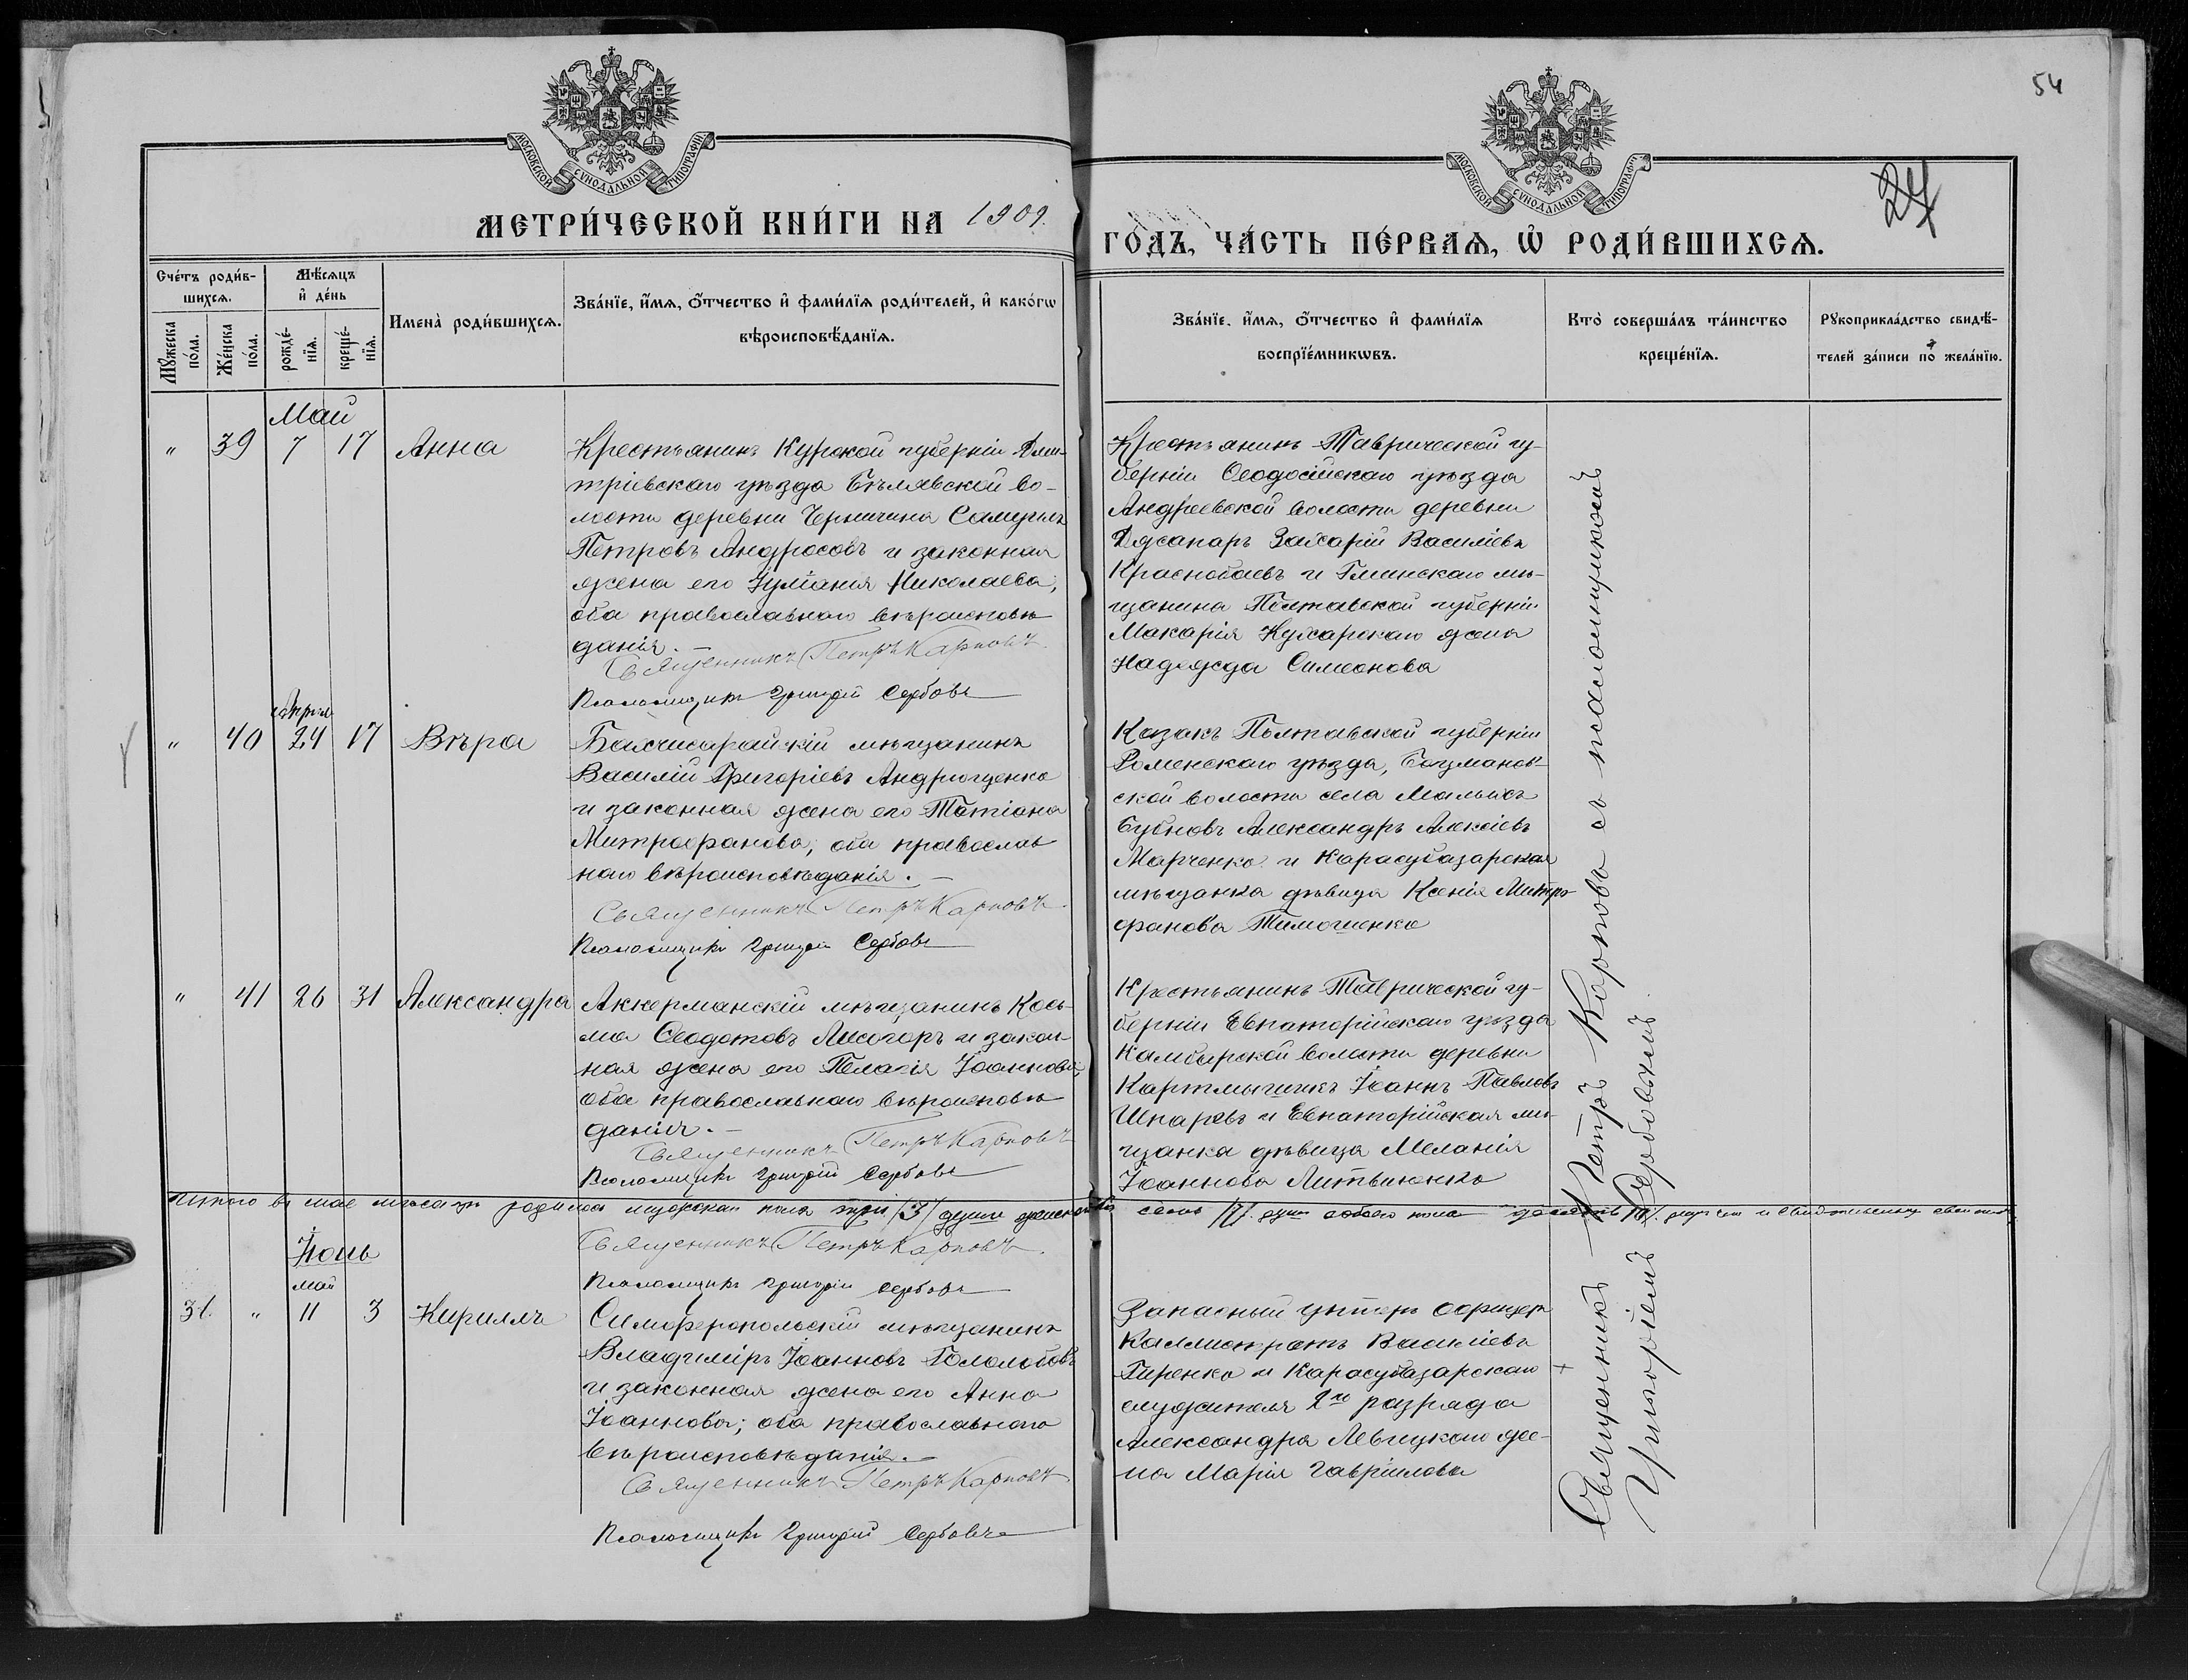 54
27
МОСКОВСКОЙ СУНОДАЛЬНОЙ ТИПОГРАФІИ
МОСКОВСКОЙ СУНОДАЛЬНОЙ ТИПОГРАФІИ
МЕТРИ́ЧЕСКОЙ КНИ́ГИ НА 1909
ГО́ДЪ, ЧА́СТЬ ПЕ́РВАѦ, Ѡ҆ РОДИ́ВШИХСѦ.
Сче́тъ роди́в-
шихсѧ.
Мꙋ́жеска
по́ла.
Же́нска
по́ла.
Мѣ́сѧцъ
и҆ де́нь
рожде́-
нїѧ.
креще́-
нїѧ.
Имена̀ роди́вшихсѧ.
Зва́нїе, и҆́мѧ, ѻ҆́тчество и҆ фами́лїѧ роди́телей, и҆ како́гѡ
вѣроисповѣ́данїѧ.
Зва́нїе, и҆́мѧ, ѻ҆́тчество и҆ фами́лїѧ
воспрїе́мникѡвъ.
Кто̀ соверша́лъ та́инство
креще́нїѧ.
Рꙋкоприкла́дство свидѣ́-
телей за́писи по жела́нїю.
Май
" 39 7 17 Анна
Крестьянинъ Курской губерніи Дми-
тріевскаго уѣзда Бѣлявской во-
лости деревни Черничина Самуилъ
Петровъ Андросовъ и законная
жена его Іуліанія Николаева,
оба православнаго вѣроисповѣ
данія. –
Священникъ Петръ Карповъ.
Псаломщикъ Григорій Сербовъ
Крестьянинъ Таврической гу-
берніи Ѳеодосійскаго уѣзда
Андреевской волости деревни
Джапаръ Захарій Василіевъ
Краснобаевъ и Глинскаго мѣ-
щанина Полтавской губерніи
Макарія Кухарскаго жена
Надежда Симеонова
Апрѣль
" 40 24 17 Вѣра
Бахчисарайскій мѣщанинъ
Василій Григоріевъ Андрющенко
и законная жена его Татіана
Митрофанова, оба православ
наго вѣроисповѣданія. –
Священникъ Петръ Карповъ.
Псаломщикъ Григорій Сербовъ
Казакъ Полтавской губерніи
Роменскаго уѣзда, Бацманов-
ской волости села
Бубновъ Александръ Алексіевъ
Марченко и Карасубазарская
мѣщанка дѣвица Ксенія Митро
фанова Тимошенко
" 41 26 31 Александра
Аккерманскій мѣщанинъ Кось-
ма Ѳеодотовъ Лисогоръ и закон-
ная жена его Пелагія Іоаннова,
оба православнаго вѣроисповѣ
данія. –
Священникъ Петръ Карповъ
Псаломщикъ Григорій Сербовъ
Крестьянинъ Таврической гу-
берніи Евпаторійскаго уѣзда
Камбарской волости деревни
Картмышикъ Іоаннъ Павловъ
Шпаревъ и Евпаторійская мѣ-
щанка дѣвица Меланія
Іоаннова Литвиненко
Итого въ мае мѣсяцѣ родилось мужскаго пола три /3/ душъ женскаго семь /7/ душъ обоего пола десять /10/
Священникъ Петръ Карповъ.
Псаломщикъ Григорій Сербовъ
Іюнь
май
31. " 11 3 Кириллъ
Симферопольскій мѣщанинъ
Владиміръ Іоанновъ Гололобовъ
и законная жена его Анна
Іоаннова; оба православнаго
вѣроисповѣданія. –
Священникъ Петръ Карповъ.
Псаломщикъ Григорій Сербовъ
Запасный унтеръ офицеръ
Каллистратъ Василіевъ
Гиренко и Карасубазарскаго
служителя 2го разряда
Александра Левицкаго же-
на Марія Гавріилова
Священникъ Петръ Карповъ съ псаломщикомъ
Григоріемъ Сербовымъ.